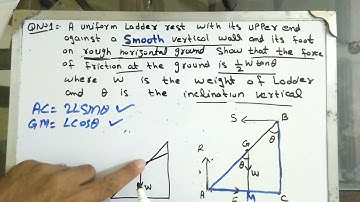 QNo1:- A uniform Ladder rest with its upper end
against a Smooth vertical wall and its foot
on rough horizontal ground Show that the force
of friction at the ground is ½ W tanθ
where W is the weight of Ladder
and θ is the inclination vertical
AC = 2LSinθ ✓
GM = LCosθ ✓
W
S B
θ
R G
θ
W
A F M C